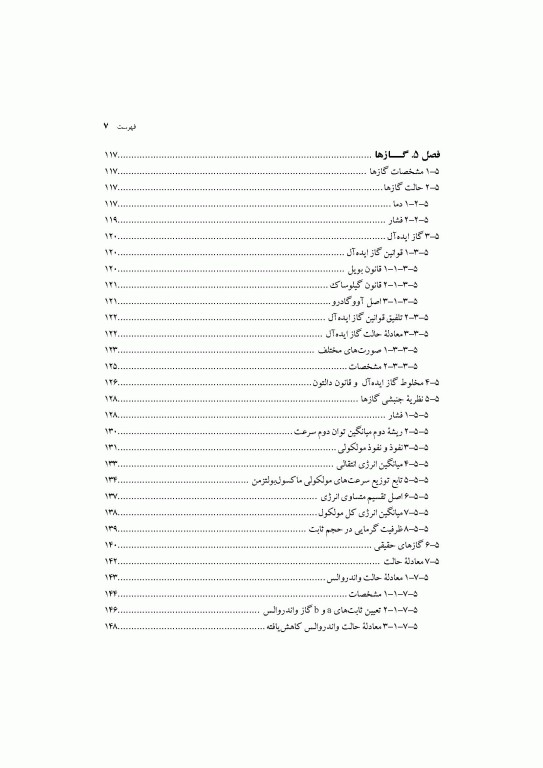 فهرست ۷
فصل ۵. گـــازها ........ ۱۱۷
۵-۱ مشخصات گازها ........ ۱۱۷
۵-۲ حالت گازها ........ ۱۱۷
۵-۲-۱ دما ........ ۱۱۷
۵-۲-۲ فشار ........ ۱۱۹
۵-۳ گاز ایده‌آل ........ ۱۲۰
۵-۳-۱ قوانین گاز ایده‌آل ........ ۱۲۰
۵-۳-۱-۱ قانون بویل ........ ۱۲۰
۵-۳-۱-۲ قانون گیلوساک ........ ۱۲۱
۵-۳-۱-۳ اصل آووگادرو ........ ۱۲۱
۵-۳-۲ تلفیق قوانین گاز ایده‌آل ........ ۱۲۲
۵-۳-۳ معادلهٔ حالت گاز ایده‌آل ........ ۱۲۲
۵-۳-۳-۱ صورت‌های مختلف ........ ۱۲۳
۵-۳-۳-۲ مشخصات ........ ۱۲۵
۵-۴ مخلوط گاز ایده‌آل و قانون دالتون ........ ۱۲۶
۵-۵ نظریهٔ جنبشی گازها ........ ۱۲۸
۵-۵-۱ فشار ........ ۱۲۸
۵-۵-۲ ریشهٔ دوم میانگین توان دوم سرعت ........ ۱۳۰
۵-۵-۳ نفوذ و نفوذ مولکولی ........ ۱۳۱
۵-۵-۴ میانگین انرژی انتقالی ........ ۱۳۳
۵-۵-۵ تابع توزیع سرعت‌های مولکولی ماکسول‌بولتزمن ........ ۱۳۴
۵-۵-۶ اصل تقسیم متساوی انرژی ........ ۱۳۷
۵-۵-۷ میانگین انرژی کل مولکول ........ ۱۳۸
۵-۵-۸ ظرفیت گرمایی در حجم ثابت ........ ۱۳۹
۵-۶ گازهای حقیقی ........ ۱۴۰
۵-۷ معادلهٔ حالت ........ ۱۴۲
۵-۷-۱ معادلهٔ حالت واندروالس ........ ۱۴۳
۵-۷-۱-۱ مشخصات ........ ۱۴۴
۵-۷-۱-۲ تعیین ثابت‌های a و b گاز واندروالس ........ ۱۴۶
۵-۷-۱-۳ معادلهٔ حالت واندروالس کاهش‌یافته ........ ۱۴۸